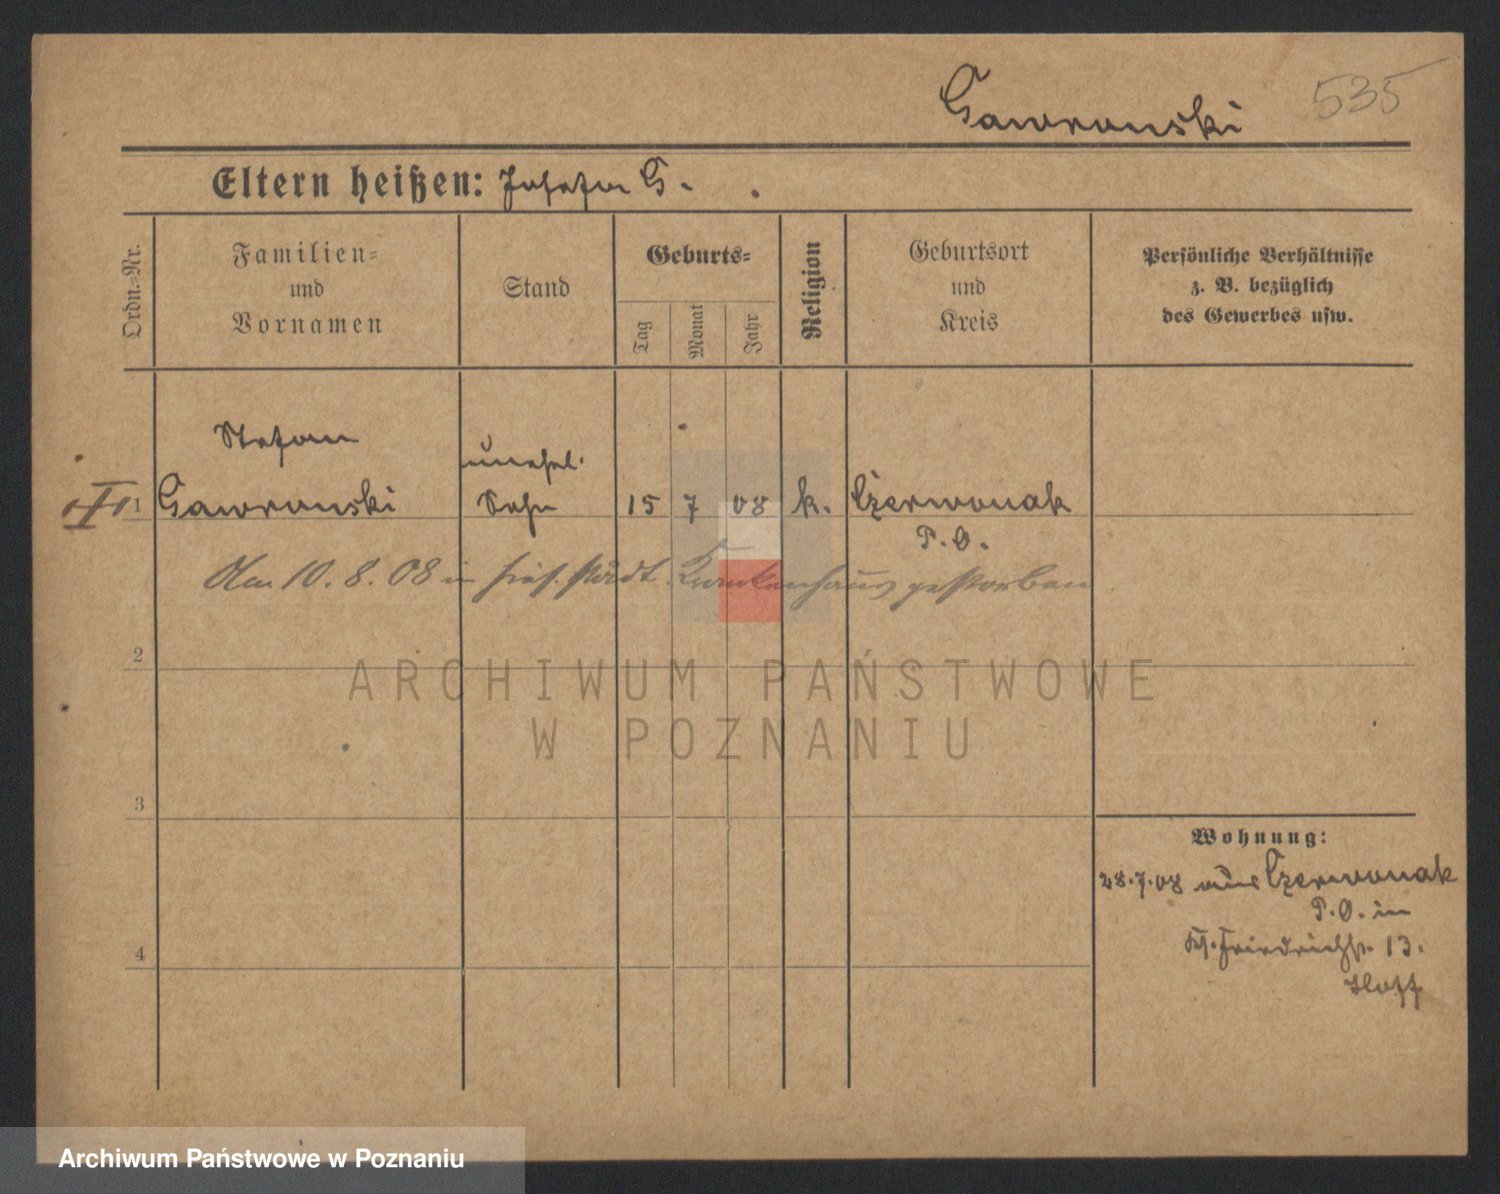 Gawronski 535
Eltern heißen: Josefa G.
Ordn.-Nr.
Familien-
und
Vornamen
Stand
Geburts-
Tag
Monat
Jahr
Religion
Geburtsort
und
Kreis
Persönliche Verhältnisse
z. B. bezüglich
des Gewerbes usw.
Stefan
unehel.
1 Gawronski Sohn 15 7 08 k. Czerwonak
P. O.
Am 10. 8. 08 in hies. städt. Krankenhaus gestorben
2
ARCHIWUM PAŃSTWOWE
W POZNANIU
3
Wohnung:
28.7.08 aus Czerwonak
P. O. in
4
Friedrichstr. 13.
Hof
Archiwum Państwowe w Poznaniu